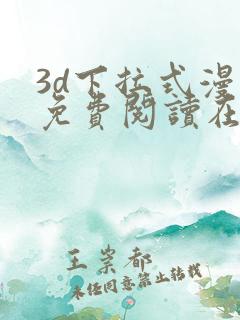 3d下拉式漫
免費閱讀在
王崇都
未经同意禁止转载